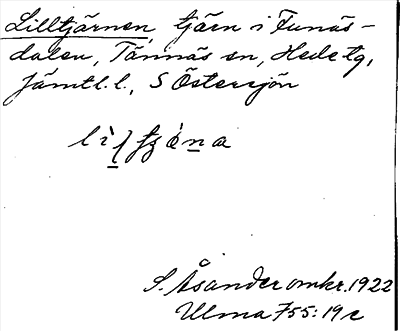 Lilltjärnen, tjärn i Funäs-
dalen, Tännäs sn, Hede tg,
Jämtl. l., S Östersjön
S. Åsander omkr. 1922
Ulma 755:19c